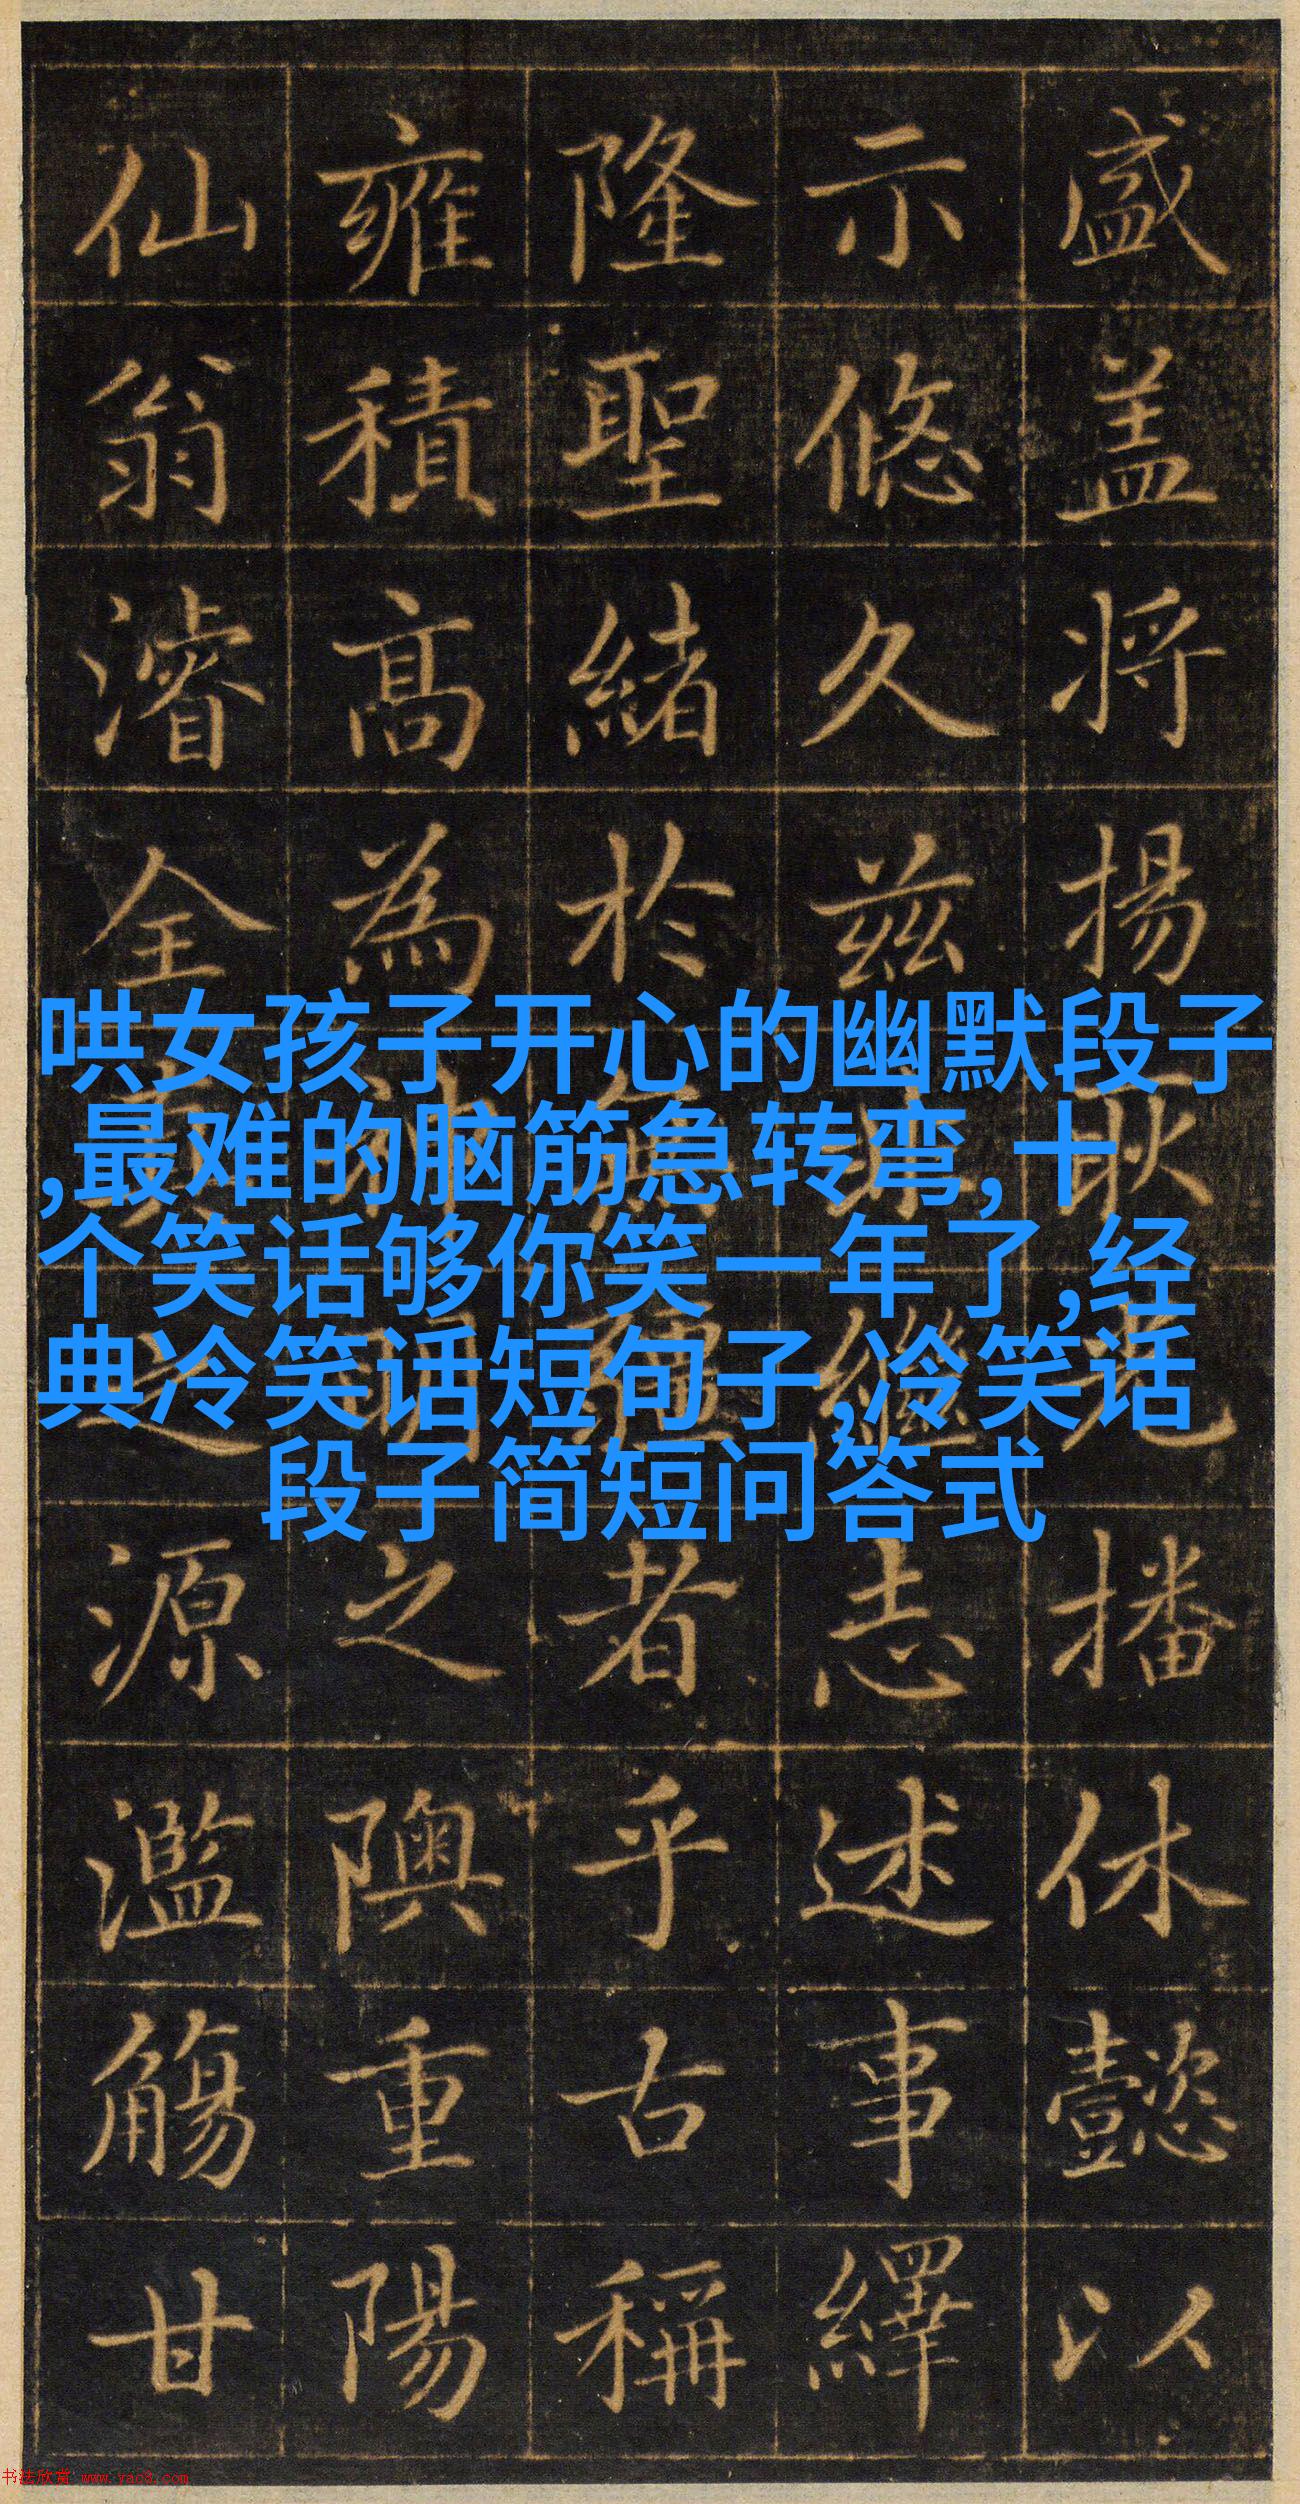 哄女孩子开心的幽默段子
,最难的脑筋急转弯,十
个笑话够你笑一年了,经
典冷笑话短句子,冷笑话
段子简短问答式
盛盖将揚耿光播休懿以
示悠久兹繼志述事繹
隆聖緒於無疆者乎古稱
雍積高為神明之隩重陽
仙翁濬全真之源濫觴甘
书法欣赏 www.yac8.com